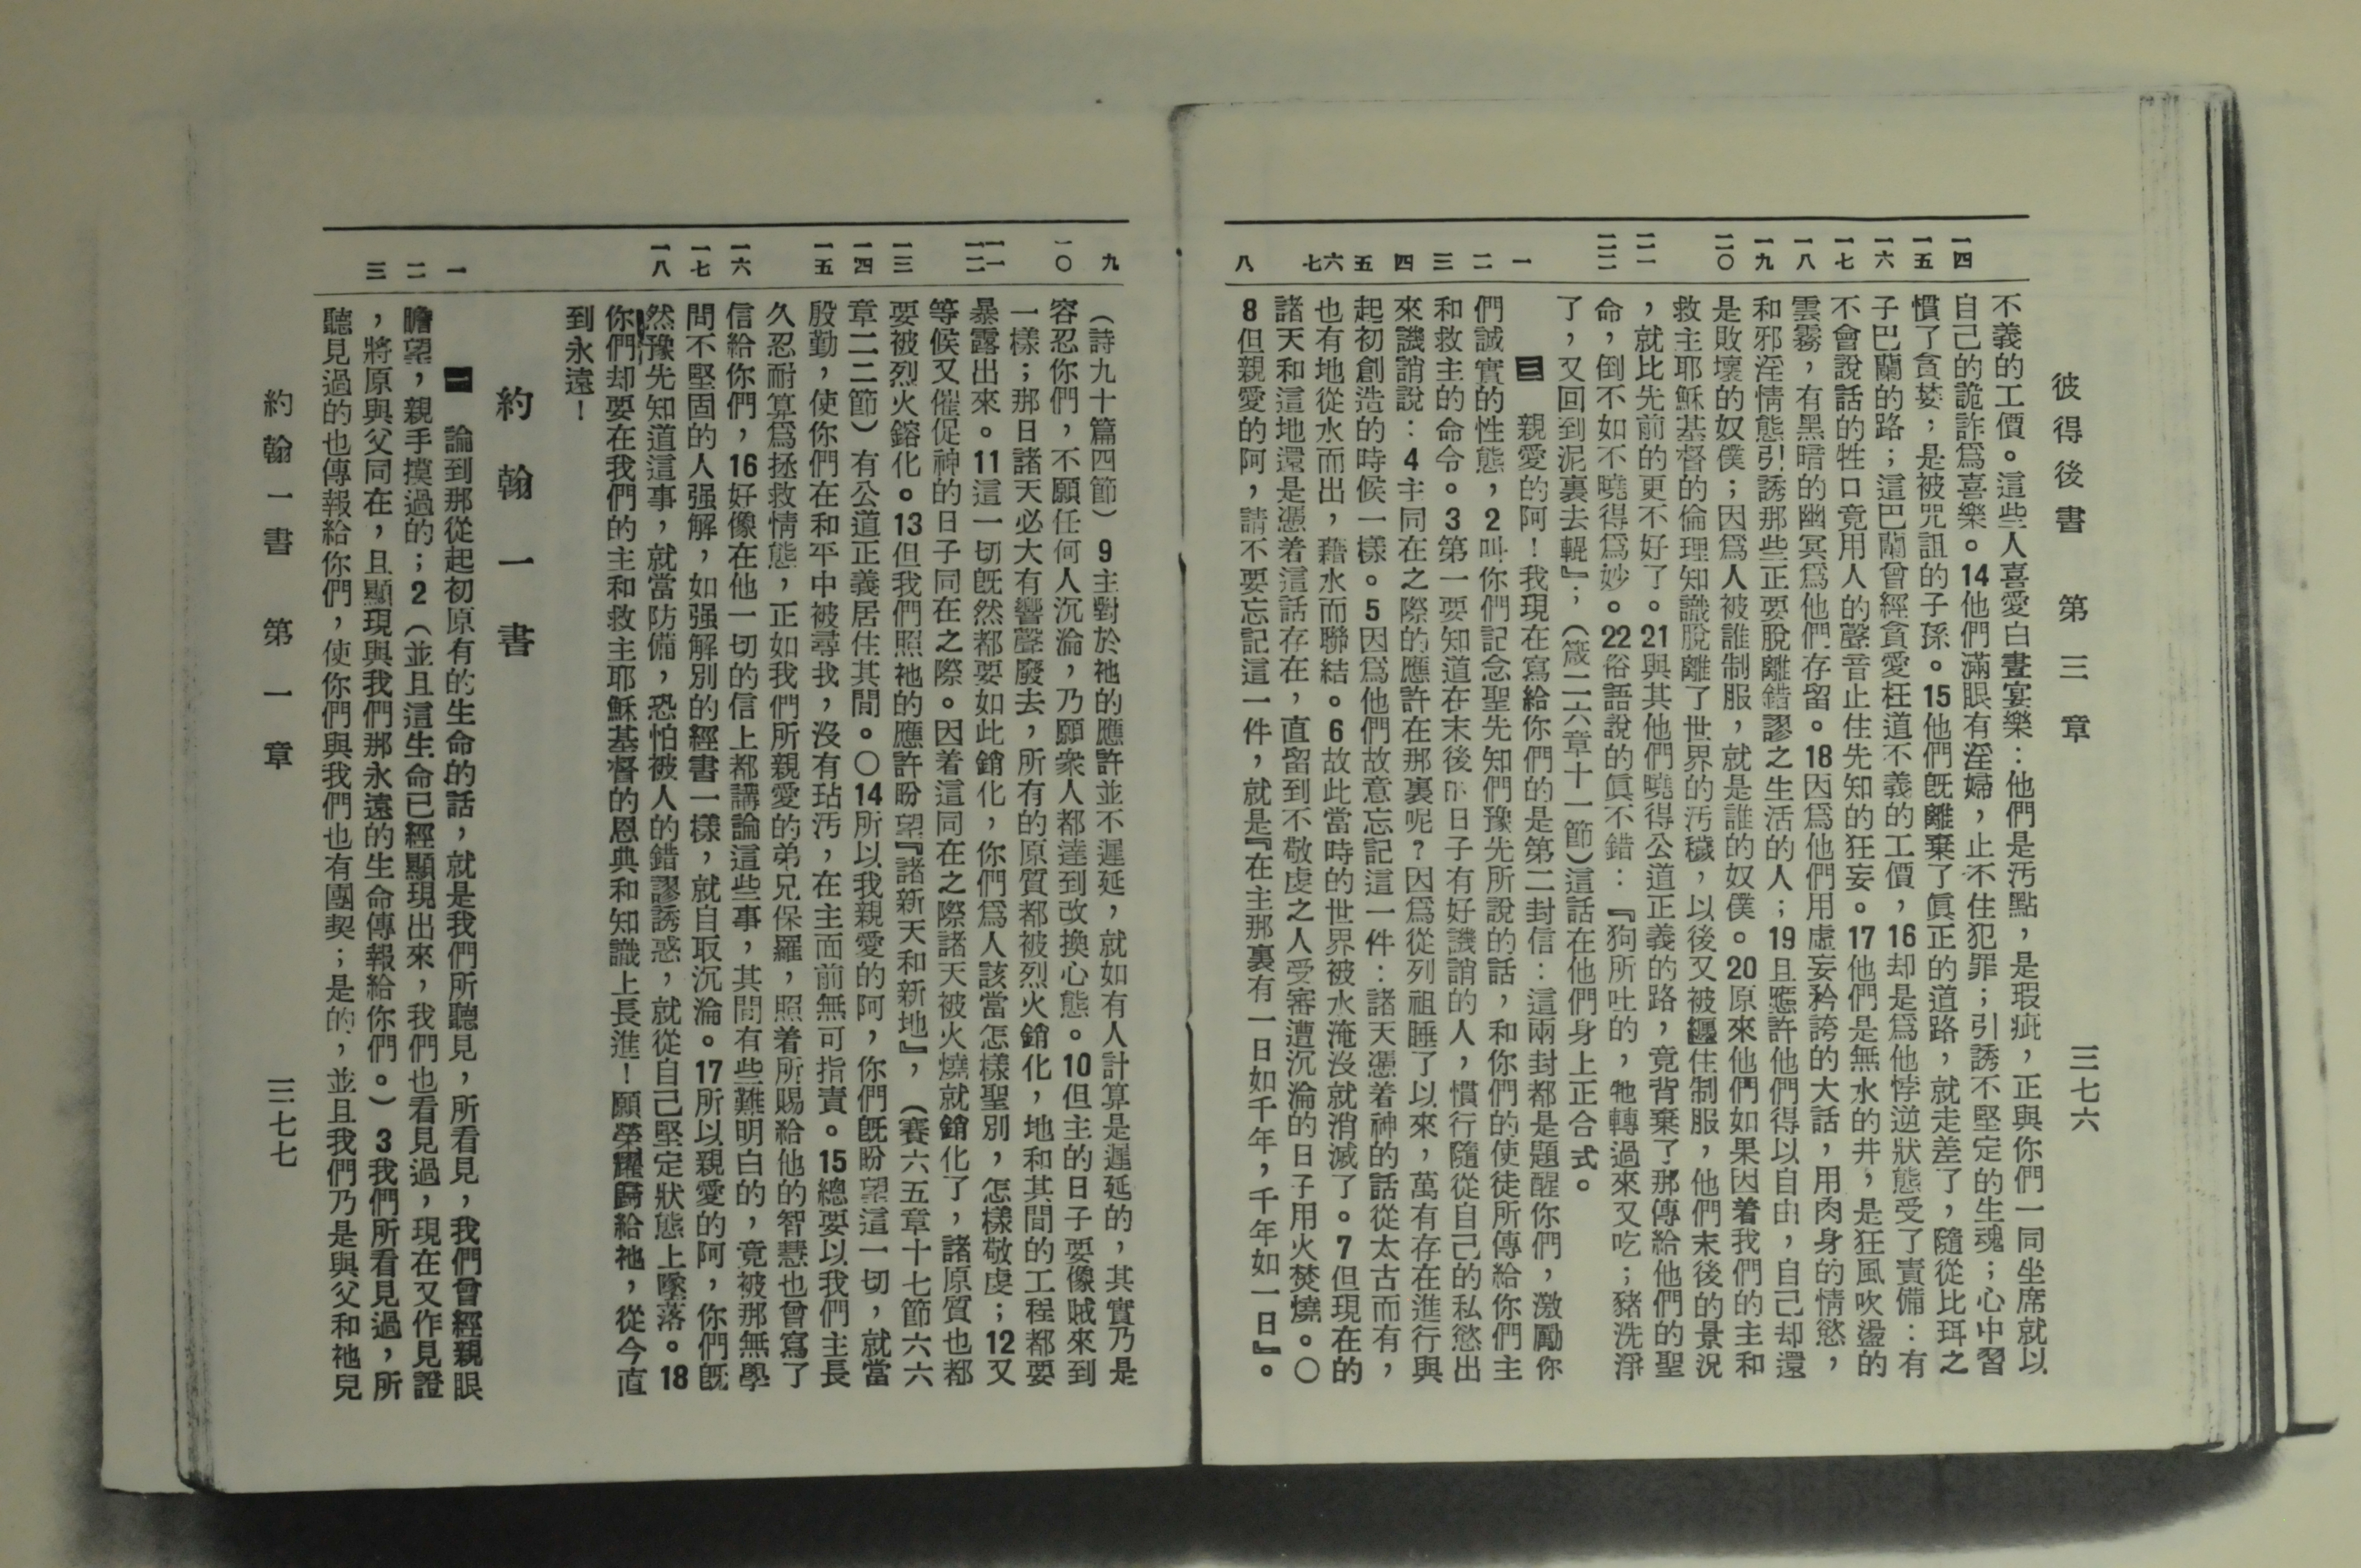 彼得後書　第三章　三七六
一四
一五
一六
一七
一八
一九
二〇
二一
二二
一
二
三
四
五
六
七
八
不義的工價。這些人喜愛白晝宴樂：他們是汚點，是瑕疵，正與你們一同坐席就以
自己的詭詐爲喜樂。14他們滿眼有淫婦，止不住犯罪；引誘不堅定的生魂；心中習
慣了貪婪；是被咒詛的子孫。15他們旣離棄了眞正的道路，就走差了，隨從比珥之
子巴蘭的路；這巴蘭曾經貪愛枉道不義的工價，16却是爲他悖逆狀態受了責備：有
不會說話的牲口竟用人的聲音止住先知的狂妄。17他們是無水的井，是狂風吹盪的
雲霧，有黑暗的幽冥爲他們存留。18因爲他們用虛妄矜誇的大話，用肉身的情慾，
和邪淫情態引誘那些正要脫離錯謬之生活的人；19且應許他們得以自由，自己却還
是敗壞的奴僕；因爲人被誰制服，就是誰的奴僕。20原來他們如果因着我們的主和
救主耶穌基督的倫理知識脫離了世界的汚穢，以後又被纏住制服，他們末後的景況
，就比先前的更不好了。21與其他們曉得公道正義的路，竟背棄了那傳給他們的聖
命，倒不如不曉得爲妙。22俗語說的眞不錯：『狗所吐的，牠轉過來又吃；豬洗淨
了，又回到泥裏去輥』；（箴二六章十一節）這話在他們身上正合式。
三　親愛的阿！我現在寫給你們的是第二封信：這兩封都是題醒你們，激勵你
們誠實的性態，2叫你們記念聖先知們豫先所說的話，和你們的使徒所傳給你們主
和救主的命令。3第一要知道在末後的日子有好譏誚的人，慣行隨從自己的私慾出
來譏誚說：4主同在之際的應許在那裏呢？因爲從列祖睡了以來，萬有存在進行與
起初創造的時候一樣。5因爲他們故意忘記這一件：諸天憑着神的話從太古而有，
也有地從水而出，藉水而聯結。6故此當時的世界被水淹沒就消滅了。7但現在的
諸天和這地還是憑着這話存在，直留到不敬虔之人受審遭沉淪的日子用火焚燒。〇
8但親愛的阿，請不要忘記這一件，就是『在主那裏有一日如千年，千年如一日』。
九
一〇
一一
一二
一三
一四
一五
一六
一七
一八
一
二
三
（詩九十篇四節）9主對於祂的應許並不遲延，就如有人計算是遲延的，其實乃是
容忍你們，不願任何人沉淪，乃願衆人都達到改換心態。10但主的日子要像賊來到
一樣；那日諸天必大有響聲廢去，所有的原質都被烈火銷化，地和其間的工程都要
暴露出來。11這一切旣然都要如此銷化，你們爲人該當怎樣聖別，怎樣敬虔；12又
等候又催促神的日子同在之際。因着這同在之際諸天被火燒就銷化了，諸原質也都
要被烈火鎔化。13但我們照祂的應許盼望『諸新天和新地』，（賽六五章十七節六六
章二二節）有公道正義居住其間。〇14所以我親愛的阿，你們旣盼望這一切，就當
殷勤，使你們在和平中被尋我，沒有玷汚，在主面前無可指責。15總要以我們主長
久忍耐算爲拯救情態，正如我們所親愛的弟兄保羅，照着所賜給他的智慧也曾寫了
信給你們，16好像在他一切的信上都講論這些事，其間有些難明白的，竟被那無學
問不堅固的人强解，如强解別的經書一樣，就自取沉淪。17所以親愛的阿，你們旣
然豫先知道這事，就當防備，恐怕被人的錯謬誘惑，就從自己堅定狀態上墜落。18
你們却要在我們的主和救主耶穌基督的恩典和知識上長進！願榮耀歸給祂，從今直
到永遠！
約翰一書
一　論到那從起初原有的生命的話，就是我們所聽見，所看見，我們曾經親眼
瞻望，親手摸過的；2（並且這生命已經顯現出來，我們也看見過，現在又作見證
，將原與父同在，且顯現與我們那永遠的生命傳報給你們。）3我們所看見過，所
聽見過的也傳報給你們，使你們與我們也有團契；是的，並且我們乃是與父和祂兒
約翰一書　第一章　三七七